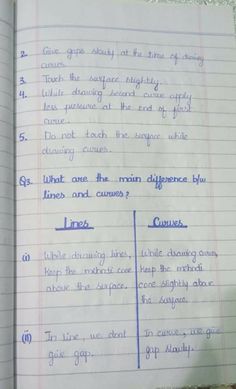 2. Give gaps slowly at the time of drawing
curves.
3. Touch the surface slightly.
4. While drawing second curve apply
less pressure at the end of first
curve.
5. Do not touch the surface while
drawing curves.
Q3. What are the main difference b/w
lines and curves?
Lines
Curves
(i) While drawing lines,
keep the mehndi cone
above the surface.
While drawing curves,
keep the mehndi
cone slightly above
the surface.
(ii) In line, we dont
give gap.
In curve, we give
gap slowly.